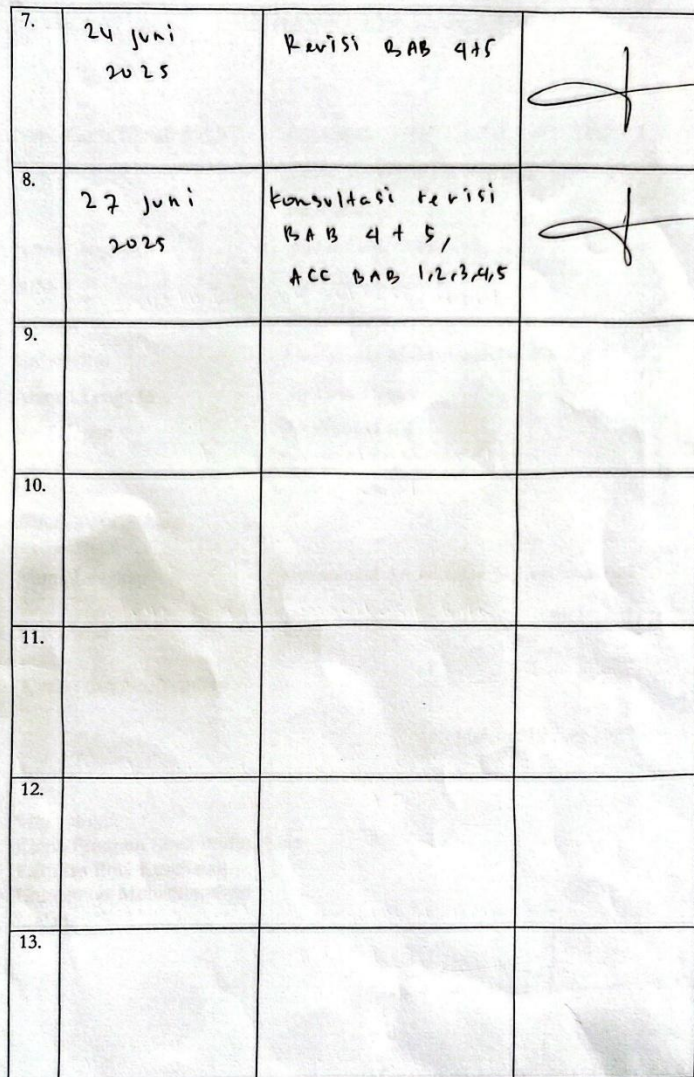 7.
24 Juni
2025
Revisi BAB 4+5
8.
27 Juni
2025
Konsultasi revisi
BAB 4 + 5,
ACC BAB 1,2,3,4,5
9.
10.
11.
12.
13.